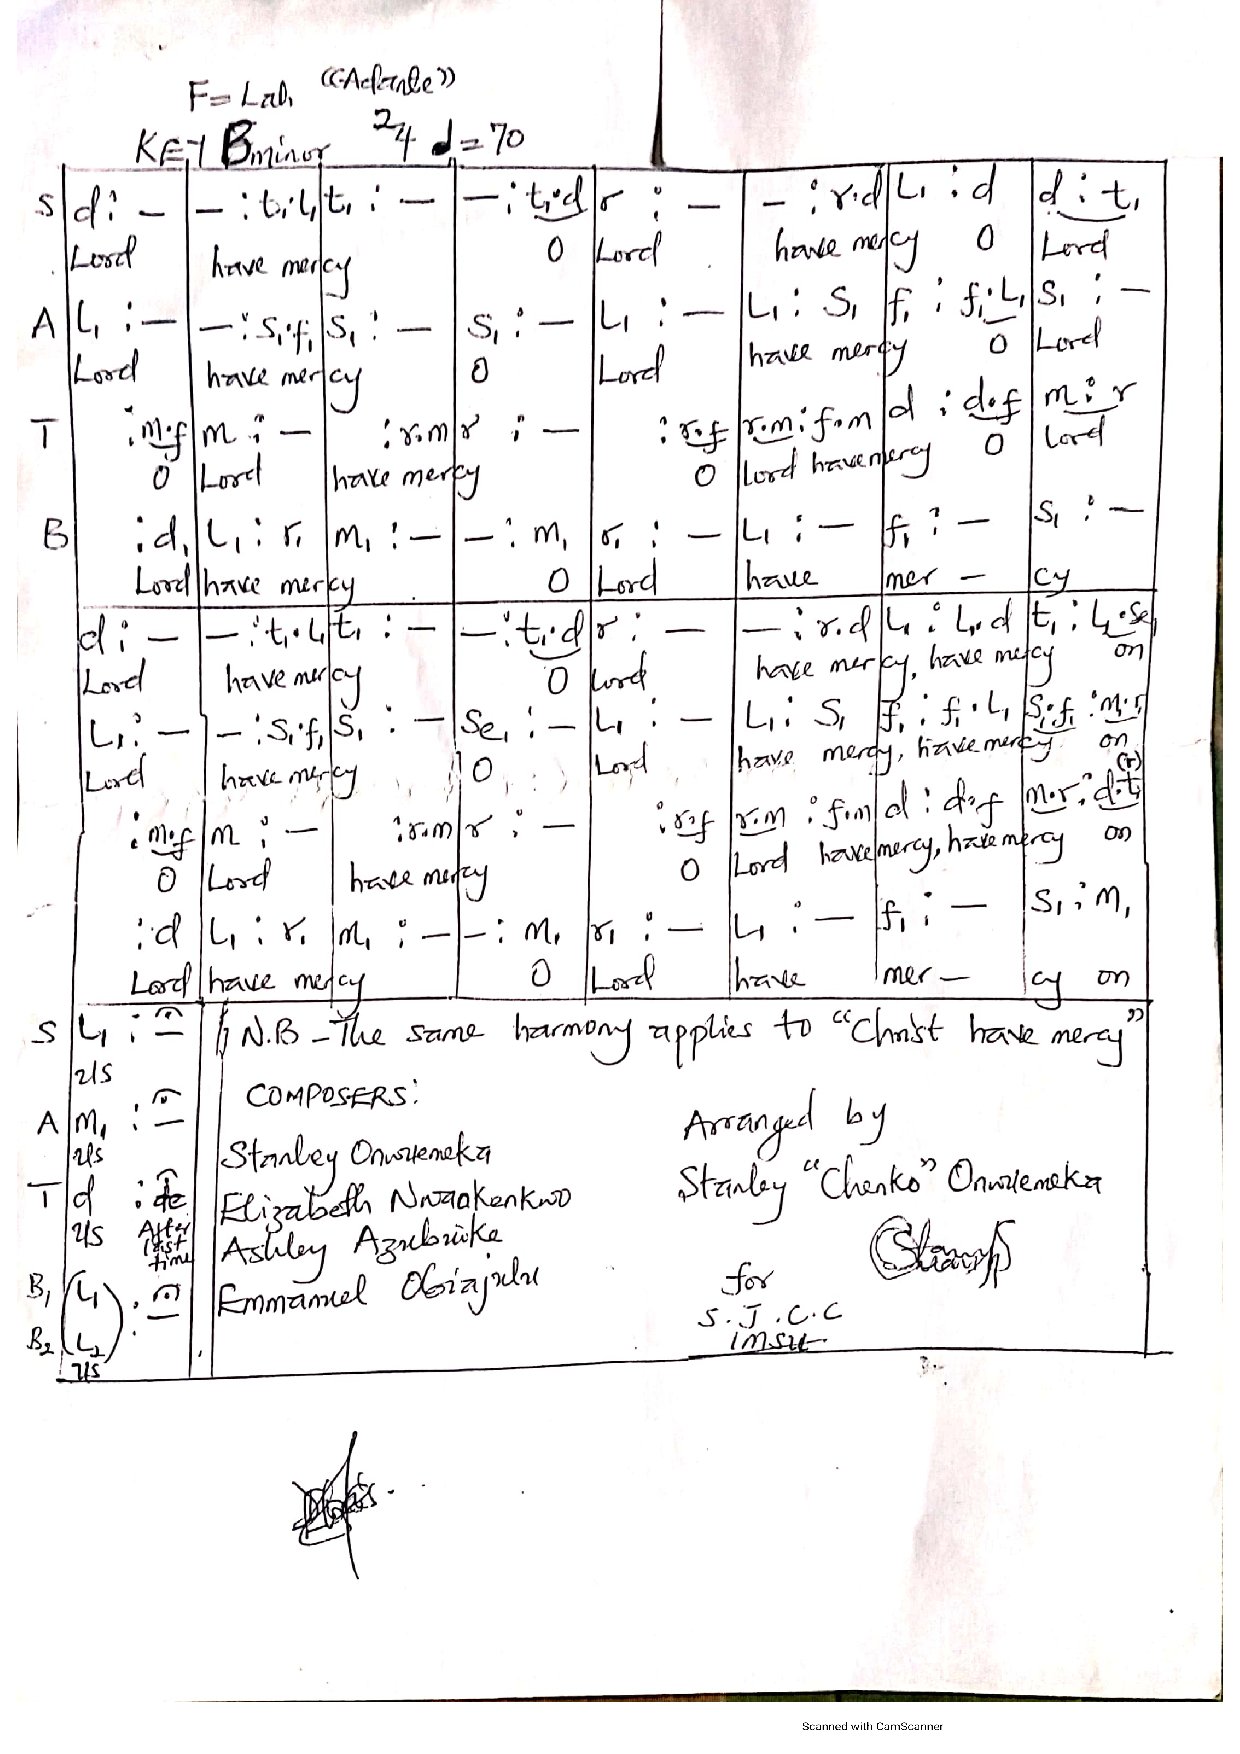 F = Lah, "Adante"
KEY Bminor 2/4 d = 70
S d : – | – : t₁.l₁ | t₁ : – | – : t₁.d | r : – | – : r.d | L₁ : d | d : t₁
Lord have mercy O Lord have mercy O Lord
A L₁ : – | – : S₁.f₁ | S₁ : – | S₁ : – | L₁ : – | L₁ : S₁ | f₁ : f₁.L₁ | S₁ : –
Lord have mercy O Lord have mercy O Lord
T : m.f | m : – | : r.m | r : – | : r.f | r.m : f.m | d : d.f | m : r
O Lord have mercy O Lord have mercy O Lord
B : d₁ | L₁ : r₁ | m₁ : – | – : m₁ | r₁ : – | L₁ : – | f₁ : – | S₁ : –
Lord have mercy O Lord have mer – cy
d : – | – : t₁.L₁ | t₁ : – | – : t₁.d | r : – | – : r.d | L₁ : L₁.d | t₁ : L₁.Se₁
Lord have mercy O Lord have mercy, have mercy on
L₁ : – | – : S₁.f₁ | S₁ : – | Se₁ : – | L₁ : – | L₁ : S₁ | f₁ : f₁.L₁ | S₁.f₁ : m₁.r₁
Lord have mercy O Lord have mercy, have mercy on
(r)
: m.f | m : – | : r.m | r : – | : r.f | r.m : f.m | d : d.f | m.r : d.t₁
O Lord have mercy O Lord have mercy, have mercy on
: d | L₁ : r₁ | m₁ : – | – : m₁ | r₁ : – | L₁ : – | f₁ : – | S₁ : m₁
Lord have mercy O Lord have mer – cy on
S L₁ : –
us
A m₁ : –
us
T d : de
us After last time
B₁ (L₁
B₂ L₂) : –
us
N.B – The same harmony applies to "Christ have mercy"
COMPOSERS:
Stanley Onwuemeka
Elizabeth Nwaokenkwo
Ashley Azubuike
Emmanuel Obiajulu
Arranged by
Stanley "Chenko" Onwuemeka
for
S.J.C.C
IMSU
Scanned with CamScanner